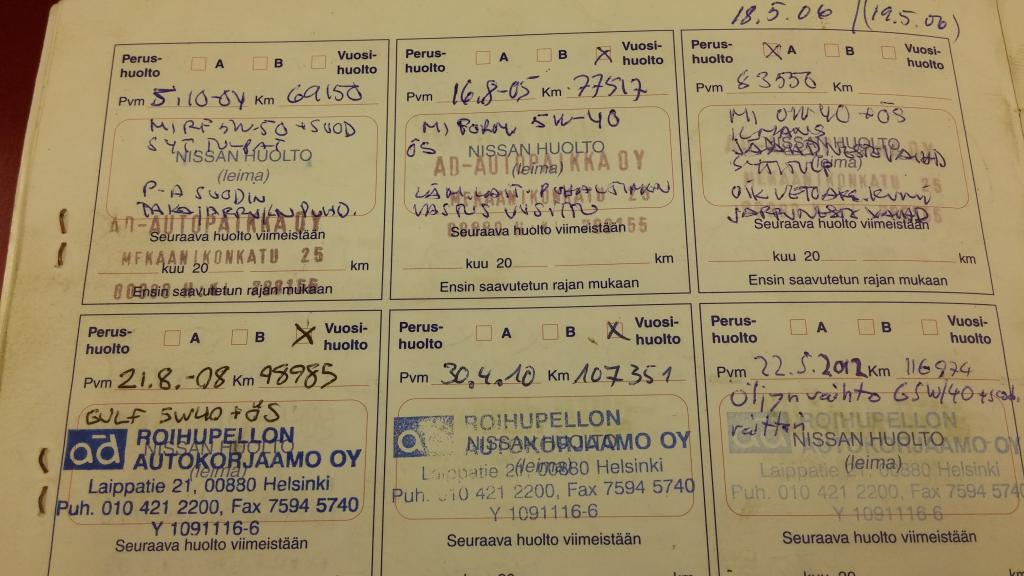 18.5.06 (19.5.06)
Perus-huolto A B Vuosi-huolto
Pvm 5.10-04 Km 69150
5W-50 + SUOD
NISSAN HUOLTO
(leima)
P-A SUODIN
AD-AUTOPAIKKA OY
Seuraava huolto viimeistään
MEKAANIKONKATU 25
kuu 20 km
Ensin saavutetun rajan mukaan
Perus-huolto A B Vuosi-huolto
Pvm 16.8-05 Km 77517
5W-40
ÖS
NISSAN HUOLTO
AD-AUTOPAIKKA OY
(leima)
MEKAANIKONKATU 25
VASTUS
Seuraava huolto viimeistään
kuu 20 km
Ensin saavutetun rajan mukaan
Perus-huolto A B Vuosi-huolto
Pvm 83550
M1 0W-40 + ÖS
ILMANS
NISSAN HUOLTO
(leima)
Seuraava huolto viimeistään
kuu 20 km
Ensin saavutetun rajan mukaan
Perus-huolto A B Vuosi-huolto
Pvm 21.8.-08 Km 98985
GULF 5W40 + ÖS
ad ROIHUPELLON
NISSAN HUOLTO
AUTOKORJAAMO OY
(leima)
Laippatie 21, 00880 Helsinki
Puh. 010 421 2200, Fax 7594 5740
Y 1091116-6
Seuraava huolto viimeistään
Perus-huolto A B Vuosi-huolto
Pvm 30.4.10 Km 107351
ROIHUPELLON
NISSAN HUOLTO
AUTOKORJAAMO OY
(leima)
Laippatie 21, 00880 Helsinki
Puh. 010 421 2200, Fax 7594 5740
Y 1091116-6
Seuraava huolto viimeistään
Perus-huolto A B Vuosi-huolto
Pvm 22.5.2012 Km 116974
Öljyn vaihto 5W/40
ROIHUPELLON
NISSAN HUOLTO
AUTOKORJAAMO OY
(leima)
Laippatie 21, 00880 Helsinki
Puh. 010 421 2200, Fax 7594 574
Y 1091116-6
Seuraava huolto viimeistään